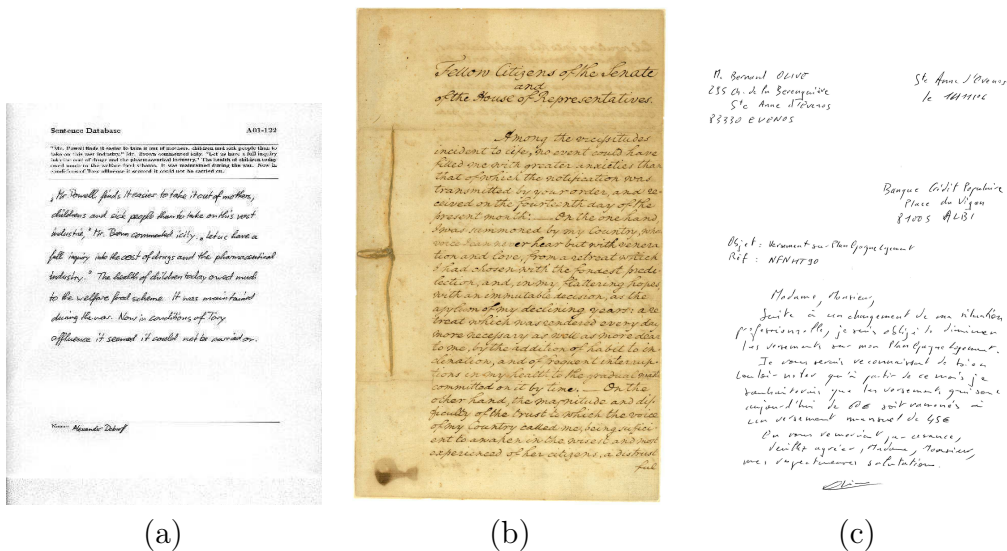 Sentence Database A01-122
"Mr. Powell finds it easier to take it out of mothers, children and sick people than to
take on this vast industry," Mr. Brown commented icily. "Let us have a full inquiry
into the cost of drugs and the pharmaceutical industry." The health of children today
owed much to the welfare food scheme. It was maintained during the war. Now in
conditions of Tory affluence it seemed it could not be carried on.
„Mr Powell finds it easier to take it out of mothers,
children and sick people than to take on this vast
industrie," Mr. Brown commented icily. „Let us have a
full inquiry into the cost of drugs and the pharmaceutical
industry." The health of children today owed much
to the welfare food scheme. It was maintained
during the war. Now in conditions of Tory
affluence it seemed it could not be carried on.
Name:
(a)
Fellow Citizens of the Senate
and
of the House of Representatives.
Among the vicissitudes
incident to life, no event could have
filled me with greater anxieties than
that of which the notification was
transmitted by your order, and re-
ceived on the fourteenth day of the
present month. On the one hand
I was summoned by my Country, whose
voice I can never hear but with venera-
tion and love, from a retreat which
I had chosen with the fondest predi-
lection, and, in my flattering hopes,
with an immutable decision, as the
asylum of my declining years: a re-
treat which was rendered every day
more necessary as well as more dear
to me, by the addition of habit to in-
clination, and of frequent interrup-
tions in my health to the gradual waste
committed on it by time. On the
other hand, the magnitude and dif-
ficulty of the trust to which the voice
of my Country called me, being suffici-
ent to awaken in the wisest and most
experienced of her citizens, a distrust-
ful
(b)
M. Bernard OLIVE
235 Ch. de la Berenguière
Ste Anne d'Evenos
83330 EVENOS
Ste Anne d'Evenos
le
Banque Crédit Populaire
Place du Vigan
81005 ALBI
Objet : versement sur Plan Epargne Logement
Réf : NFNHT90
Madame, Monsieur,
Suite à un changement de ma situation
professionnelle, je suis obligé de diminuer
les versements sur mon Plan Epargne Logement.
Je vous serais reconnaissant de bien
vouloir noter qu'à partir de ce mois je
souhaiterais que les versements qui sont
aujourd'hui de soit ramenés à
un versement mensuel de 45€
En vous remerciant par avance,
veuillez agréer, Madame, Monsieur,
mes respectueuses salutations.
(c)